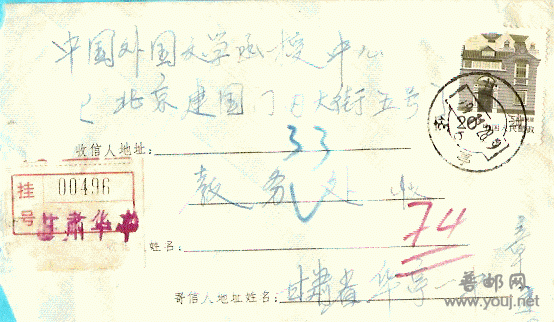 中国外国文学函授中心
北京建国门内大街五号
收信人地址:
33
教务处 收
挂号
00496
甘肃华亭
74
姓名:
寄信人地址姓名:
甘肃省华亭一
20
普邮网
www.youj.net